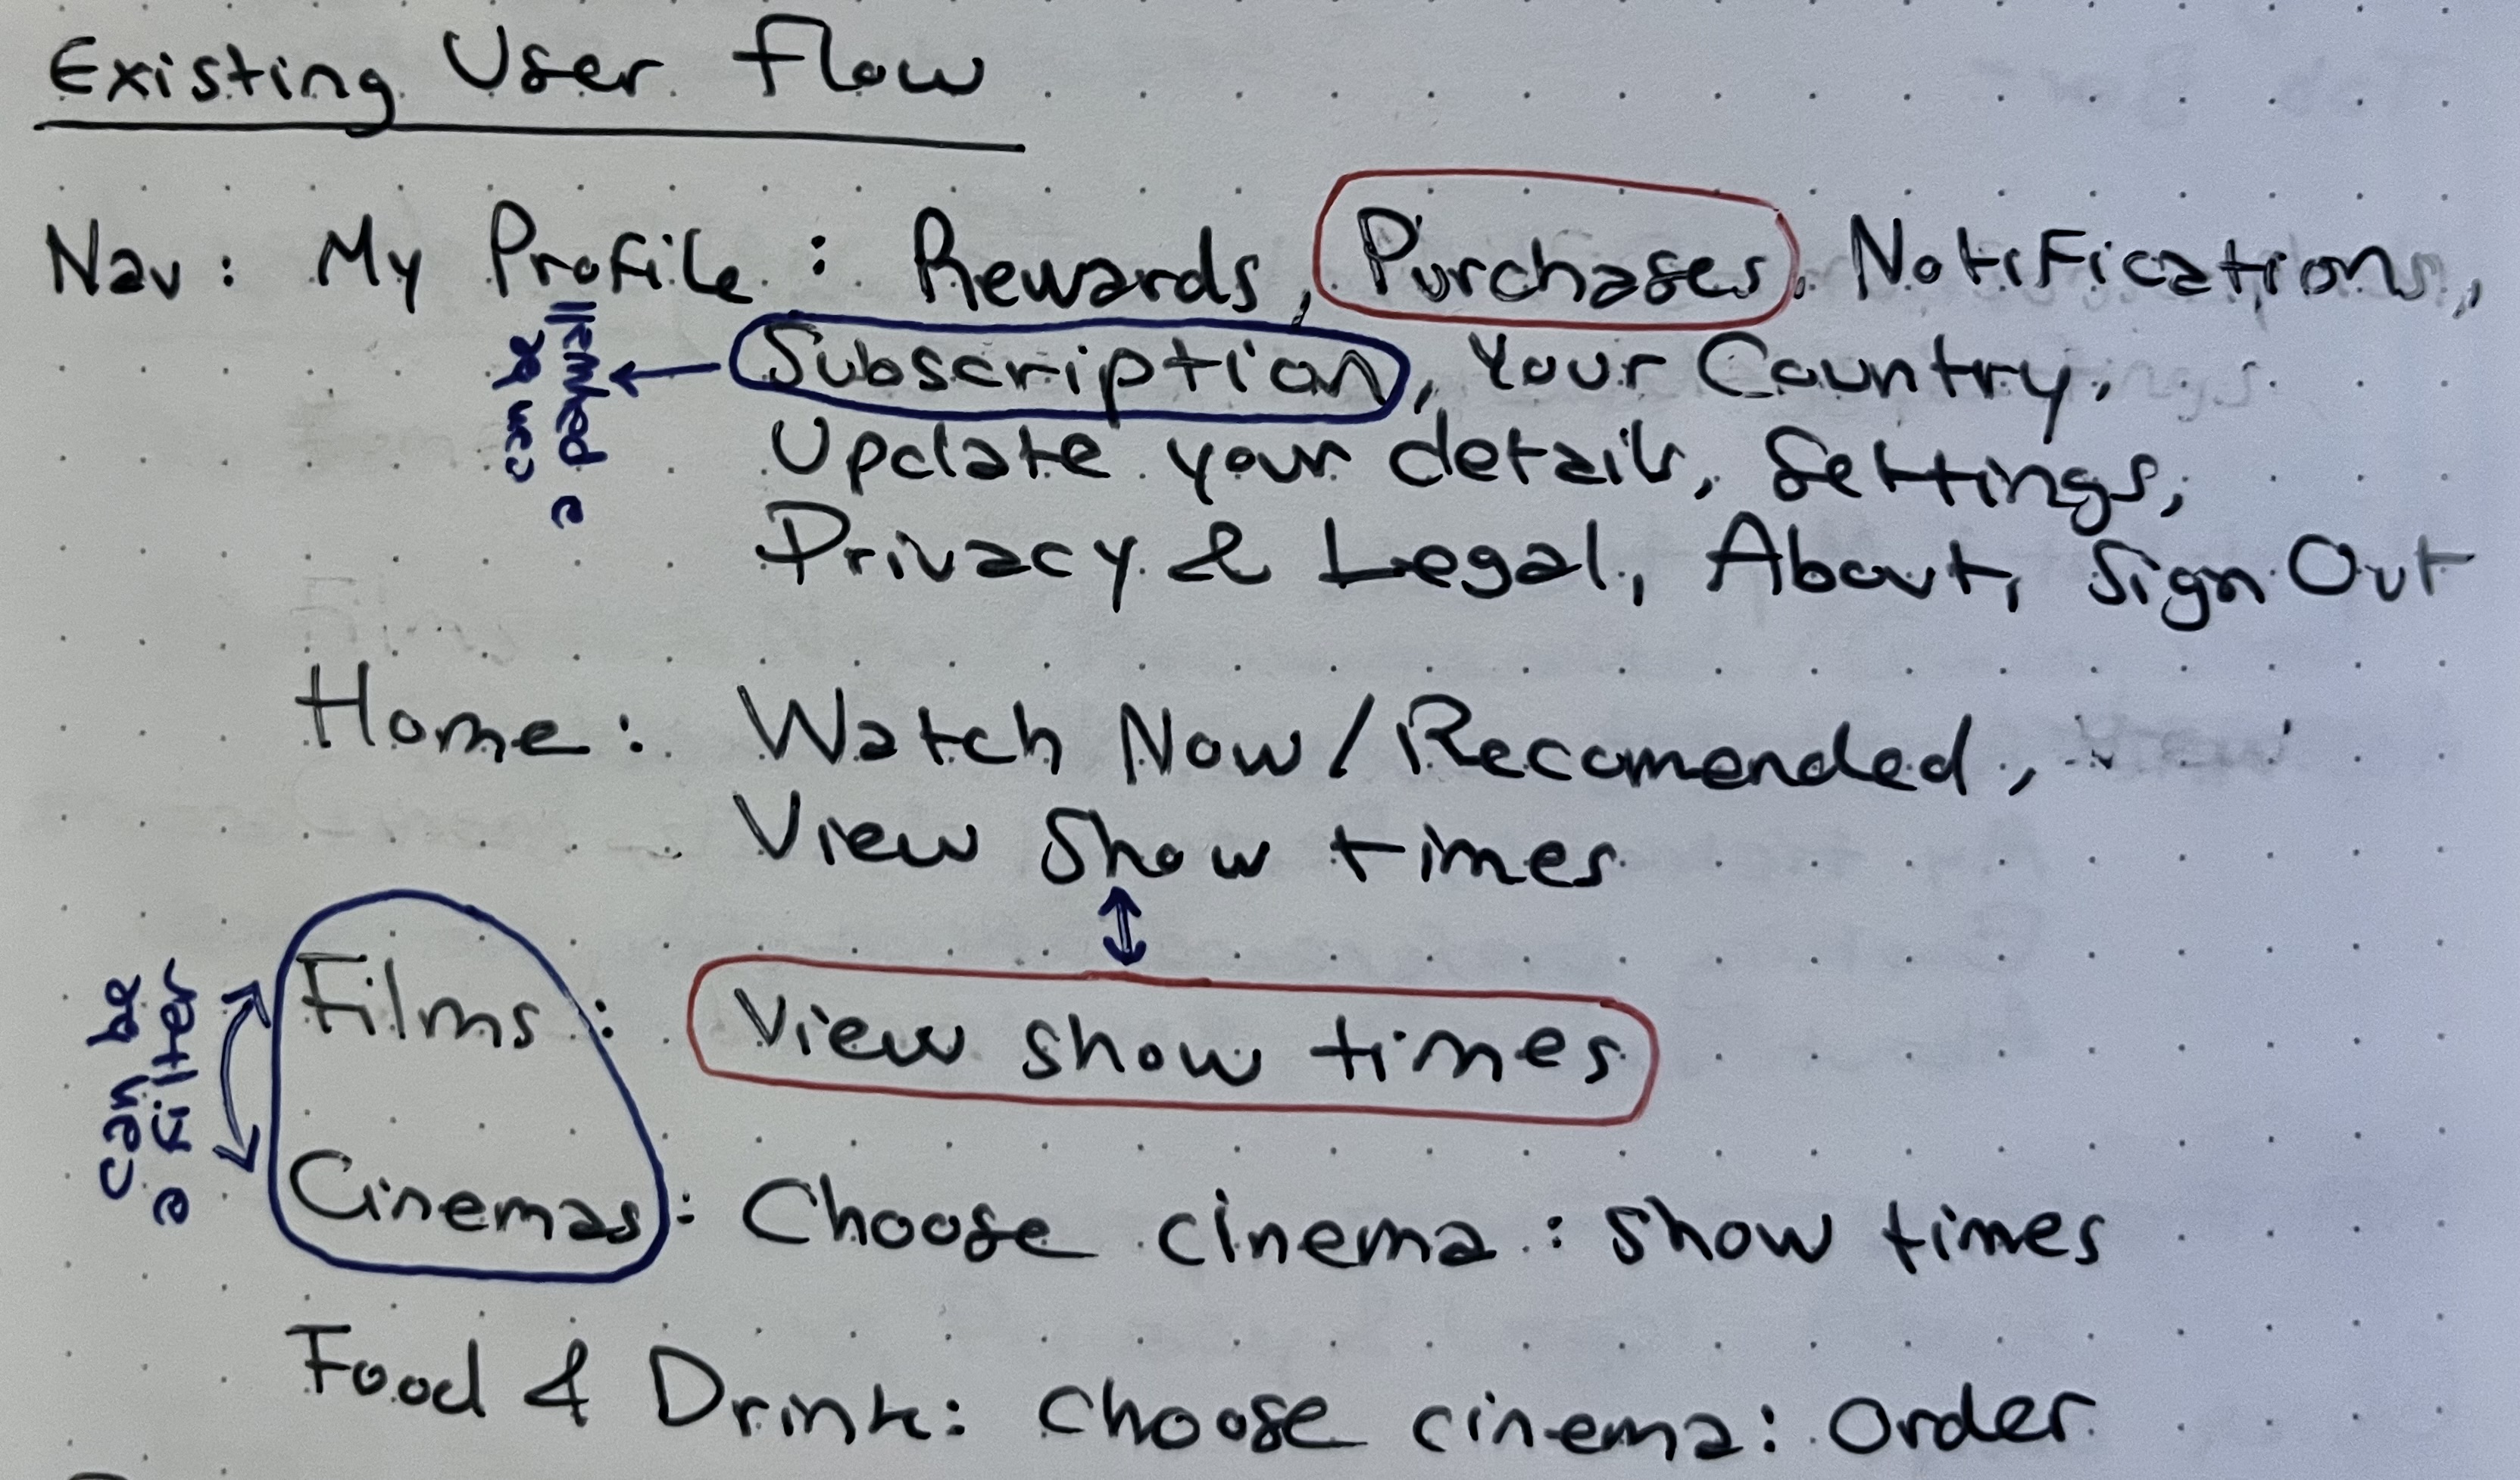 Existing User Flow
Nav: My Profile: Rewards, Purchases, Notifications,
Subscription, Your Country,
Update your details, Settings,
Privacy & Legal, About, Sign Out
can be
a pdewall
Home: Watch Now/Recomended,
View Show times
Films: View show times
can be
a filter
Cinemas: Choose cinema: show times
Food & Drink: choose cinema: Order